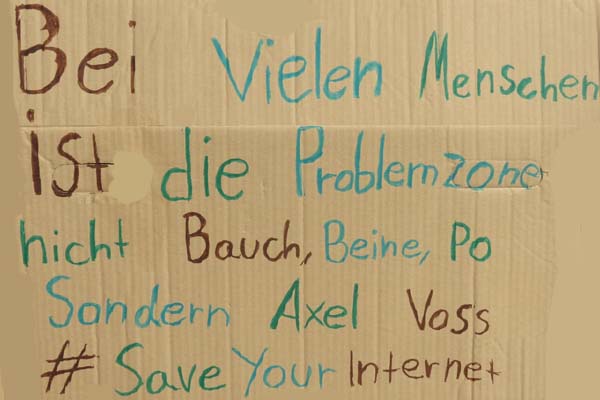 Bei Vielen Menschen
ist die Problemzone
nicht Bauch, Beine, Po
Sondern Axel Voss
# Save Your Internet